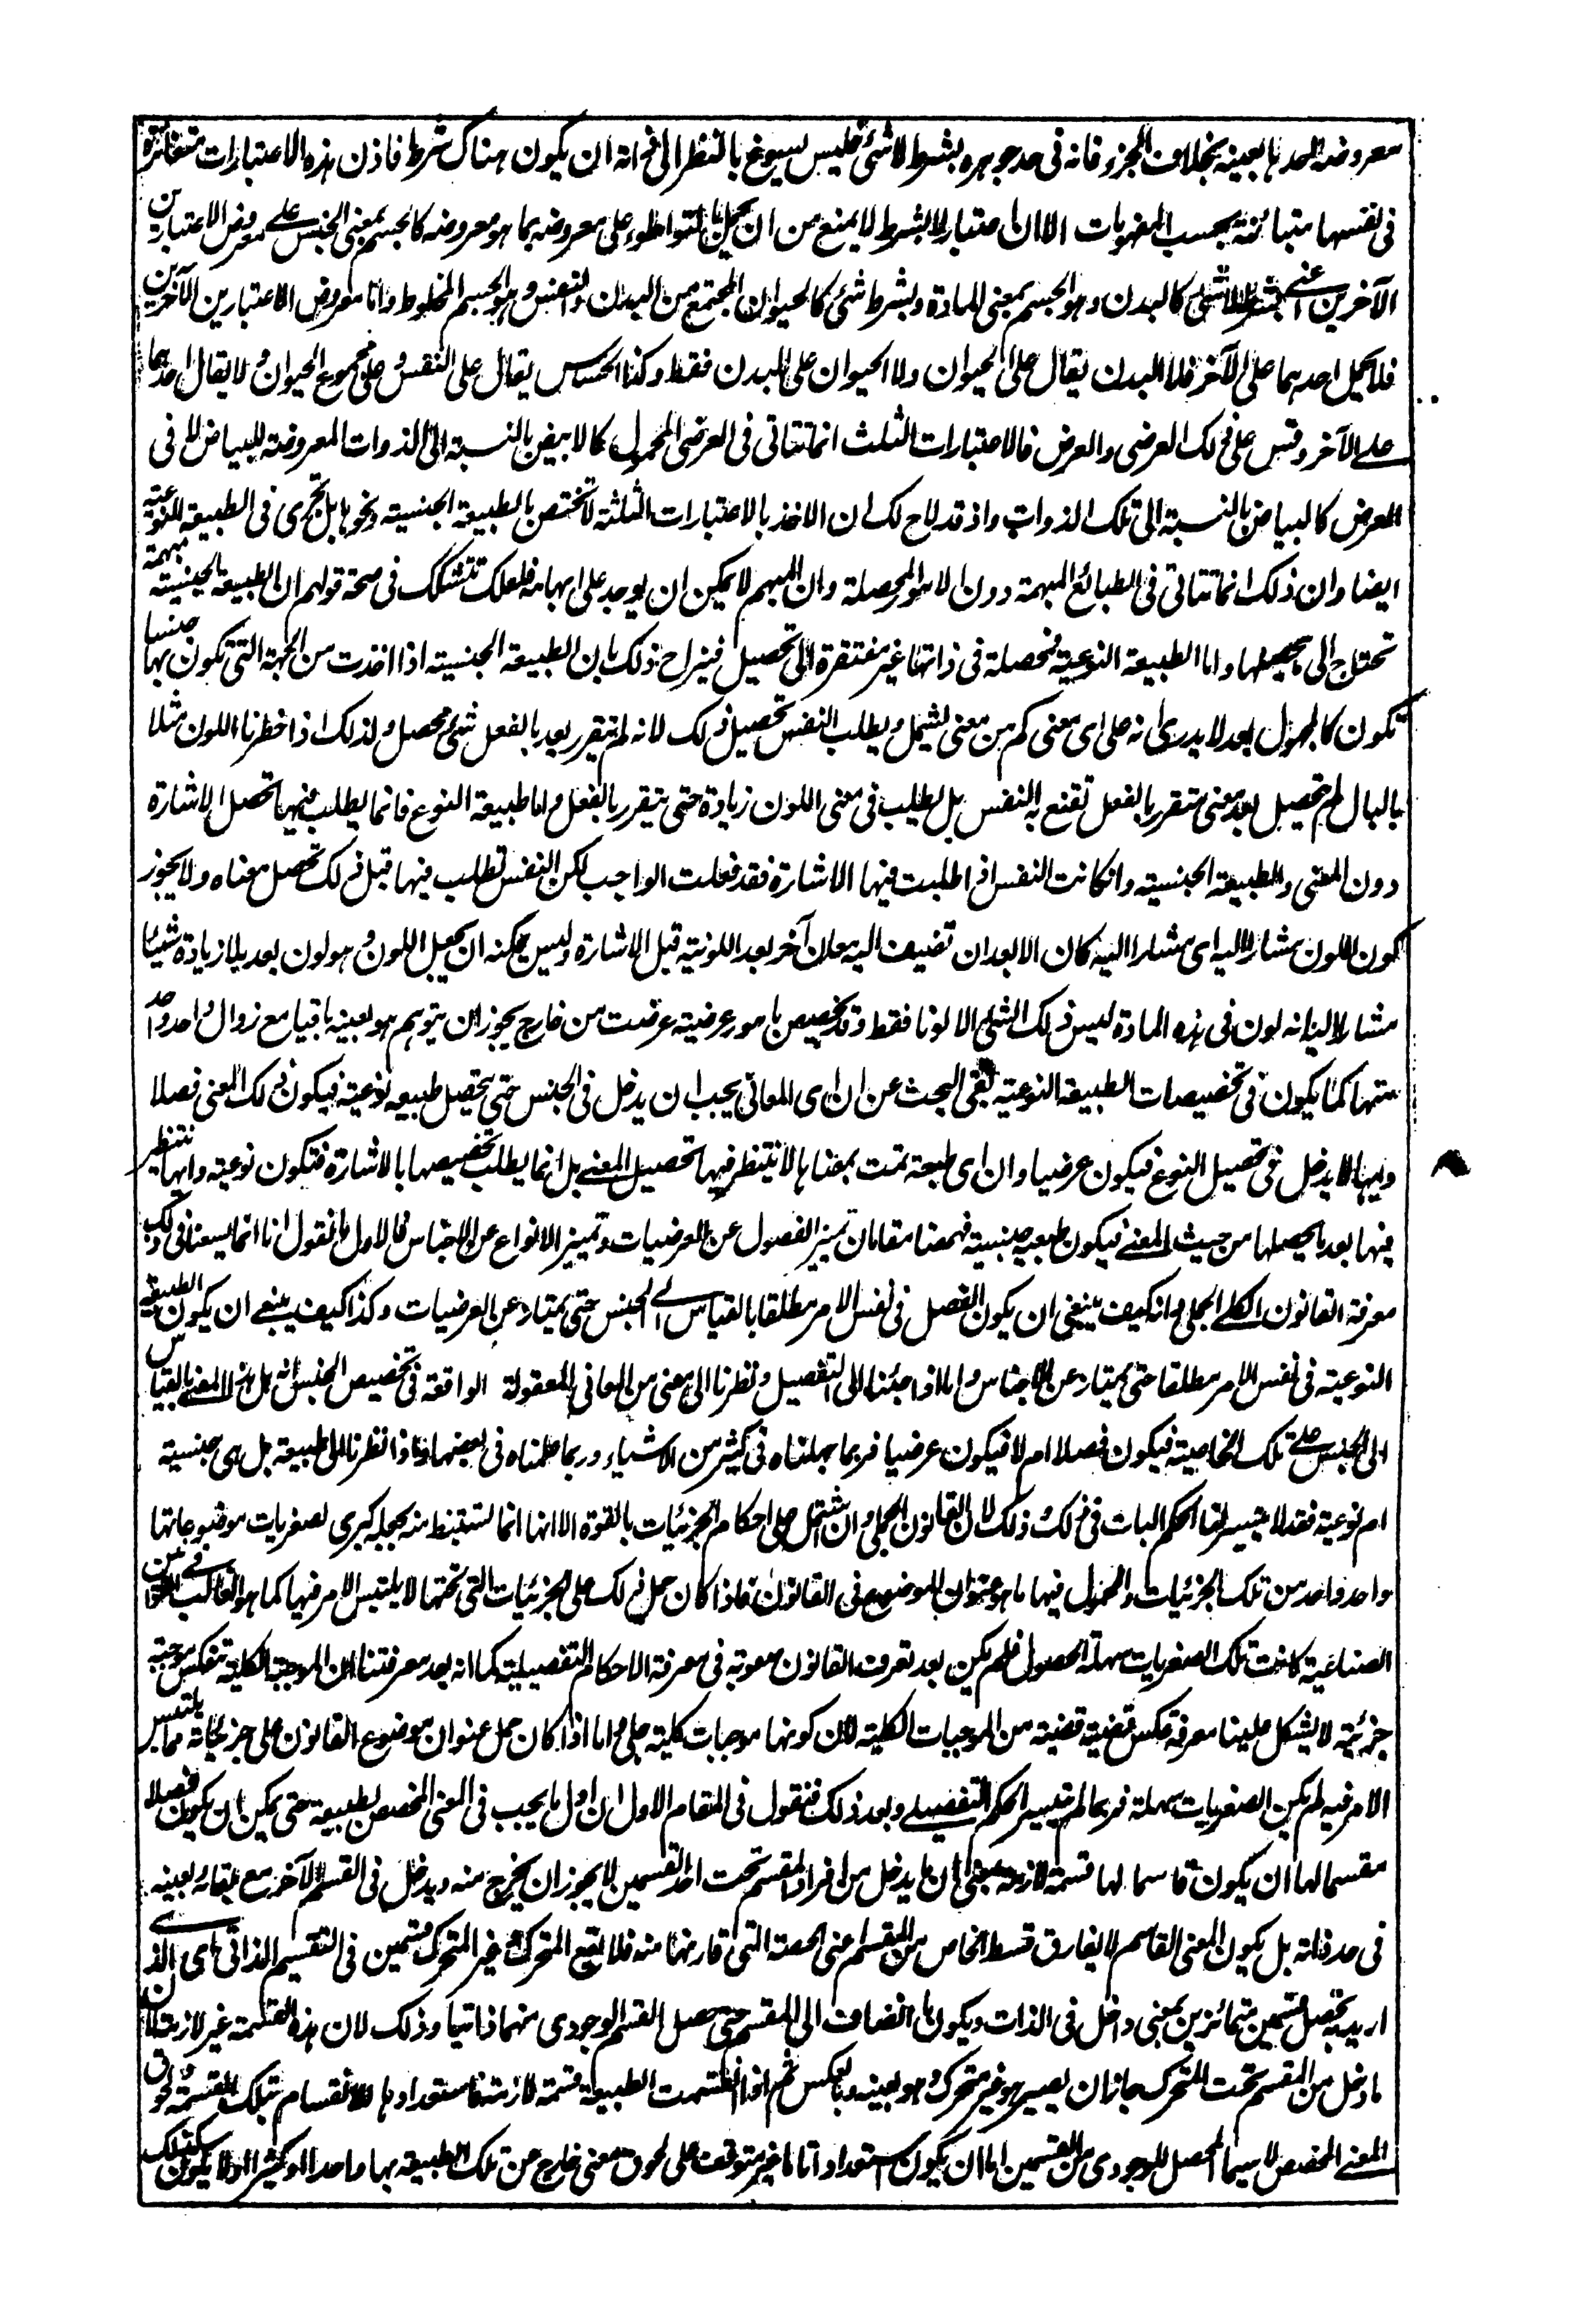 معروضه لاحدها بعينه بخلاف الجزو فانه فى حد جوهره بشرط لا شئ فليس يسوغ بالنظر الى ذاته ان يكون هناك شرط فاذن هذه الاعتبارات متغائرة
فى نفسها متبائنة بحسب المفهومات الا ان اعتبار لا بشرط لا يمنع من ان يحمل بالتواطوء على معروضه بما هو معروضه كالجسم بمعنى الجنس على معروض الاعتبارين
الآخرين اعنى بشرط لا شئ كالبدن وهو الجسم بمعنى المادة وبشرط شئ كالحيوان المجتمع من البدن والنفس وهو الجسم المخلوط واما معروض الاعتبارين الآخرين
فلا يحمل احدهما على الآخر فلا البدن يقال على الحيوان ولا الحيوان على البدن فقط وكذا الحساس يقال على النفس وعلى مجموع الحيوان ولا يقال احدهما
على الآخر وقس على ذلك العرضى والعرض فالاعتبارات الثلث انما تتاتى فى العرضى المحمول كالابيض بالنسبة الى الذوات المعروضة للبياض لا فى
العرض كالبياض بالنسبة الى تلك الذوات واذ قد لاح لك ان الاخذ بالاعتبارات الثلثة لا تختص بالطبيعة الجنسية ونحوها بل تجرى فى الطبيعة النوعية
ايضا وان ذلك انما تتاتى فى الطبائع المبهمة دون الامور المحصلة وان المبهم لا يمكن ان يوجد على ابهامه فلعلك تتشكك فى صحة قولهم ان الطبيعة الجنسية مبهمة
تحتاج الى ما يحصلها واما الطبيعة النوعية فمحصلة فى ذاتها غير مفتقرة الى تحصيل فيزاح ذلك بان الطبيعة الجنسية اذا اخذت من الجهة التى تكون بها جنسا
تكون كالمجهول بعد لا يدرى انه على اى معنى كم من معنى يشمل ويطلب النفس تحصيل ذلك لانه لم يتقرر بعد بالفعل شئ محصل ولذلك اذا خطرنا اللون مثلا
بالبال لم تحصيل بعد معنى متقرر بالفعل تقنع به النفس بل يطلب فى معنى اللون زيادة حتى يتقرر بالفعل واما طبيعة النوع فانما يطلب فيها تحصل الاشارة
دون المعنى والطبيعة الجنسية وان كانت النفس اذا طلبت فيها الاشارة فقد فعلت الواجب لكن النفس تطلب فيها قبل ذلك تحصل معناه ولا يجوز
كون اللون مشارا اليه اى مشارا اليه كان الا بعد ان تضيف اليه معان آخر بعد اللونية قبل الاشارة وليس يمكنه ان يجعل اللون وهو لون بعد بلا زيادة شيئا
مشارا اليه انه لون فى هذه المادة ليس ذلك الشئ الا لونا فقط وقد تخصيص بامور عرضية عرضت من خارج يجوز ان يتوهم هو بعينه باقيا مع زوال واحد واحد
منها كما يكون فى تخصيصات الطبيعة النوعية بقى البحث عن ان اى المعانى يجب ان يدخل فى الجنس حتى يتحصل طبيعة نوعية فيكون ذلك المعنى فصلا
وايها لا يدخل فى تحصيل النوع فيكون عرضيا وان اى طبيعة تمت بمعناها لا ينتظر فيها تحصيل المعنى بل انما يطلب تخصيصها بالاشارة فتكون نوعية وايها ينتظر
فيها بعد ما يحصلها من حيث المعنى فيكون طبيعة جنسية فههنا مقامان تميز الفصول عن العرضيات وتمييز الانواع عن الاجناس فالاول نقول انا انما يسعنا فى ذلك
معرفة القانون الكلى الجملى وانه كيف ينبغى ان يكون الفصل فى نفس الامر مطلقا بالقياس الى الجنس حتى يمتاز عن العرضيات وكذا كيف ينبغى ان يكون الطبيعة
النوعية فى نفس الامر مطلقا حتى يمتاز عن الاجناس واما اذا جئنا الى التفصيل ونظرنا الى معنى من المعانى المعقولة الواقعة فى تخصيص الجنس انه هل هذا المعنى بالقياس
الى الجنس على تلك الخاصية فيكون فصلا ام لا فيكون عرضيا فربما جهلناه فى كثير من الاشياء وربما علمناه فى بعضها واذا نظرنا الى طبيعة هل هى جنسية
ام نوعية فقد لا يتيسر لنا الحكم البات فى ذلك وذلك لان القانون الجملى وان يشتمل على احكام الجزئيات بالقوة الا انها انما تستنبط منه بجعله كبرى لصغريات موضوعاتها
واحد واحد من تلك الجزئيات والمحمول فيها ما هو عنوان الموضوع فى القانون فاذا كان حمل ذلك على الجزئيات التى تحتها لا يلتبس الامر فيها كما هو الغالب فى القوانين
الصناعية كانت تلك الصغريات سهلة الحصول فلم يكن بعد تعرف القانون صعوبة فى معرفة الاحكام التفصيلية كما انه بعد معرفتنا ان الموجبة الكلية تنعكس موجبة
جزئية لا يشكل علينا معرفة عكس قضية قضية من الموجبات الكلية لان كونها موجبات كلية جلى واما اذا كان حمل عنوان موضوع القانون على جزئياته مما يلتبس
الامر فيه لم يكن الصغريات سهلة فربما لم يتيسر الحكم التفصيلى وبعد ذلك فنقول فى المقام الاول ان اول ما يجب فى المعنى المخصص لطبيعة حتى يمكن ان يكون فصلا
مقسما لها ان يكون قاسما لها قسمة لازمة بمعنى ان ما يدخل من افراد المقسم تحت احد القسمين لا يجوز ان يخرج منه ويدخل فى القسم الآخر مع بقائه بعينه
فى حد ذاته بل يكون المعنى القاسم لا يفارق قسطه الخاص من المقسم اعنى الحصة التى قارنها منه فلا يقع المتحرك وغير المتحرك قسمين فى التقسيم الذاتى اى الذى
اريد به تحصل قسمين متمائزين بمعنى داخل فى الذات ويكون ما انضاف الى المقسم حتى حصل القسم الوجودى منهما ذاتيا وذلك لان هذه القسمة غير لازمة لان
ما دخل من المقسم تحت المتحرك جاز ان يصير هو غير متحرك وهو بعينه وبالعكس ثم اذا انقسمت الطبيعة قسمة لازمة فاستعدادها للانقسام بتلك القسمة ولحوق
المعنى المخصص لا سيما المحصل للوجودى من القسمين اما ان يكون استعدادا تاما غير متوقف على لحوق معنى خارج عن تلك الطبيعة بها واحدا او كثيرا او لا يكون كذلك